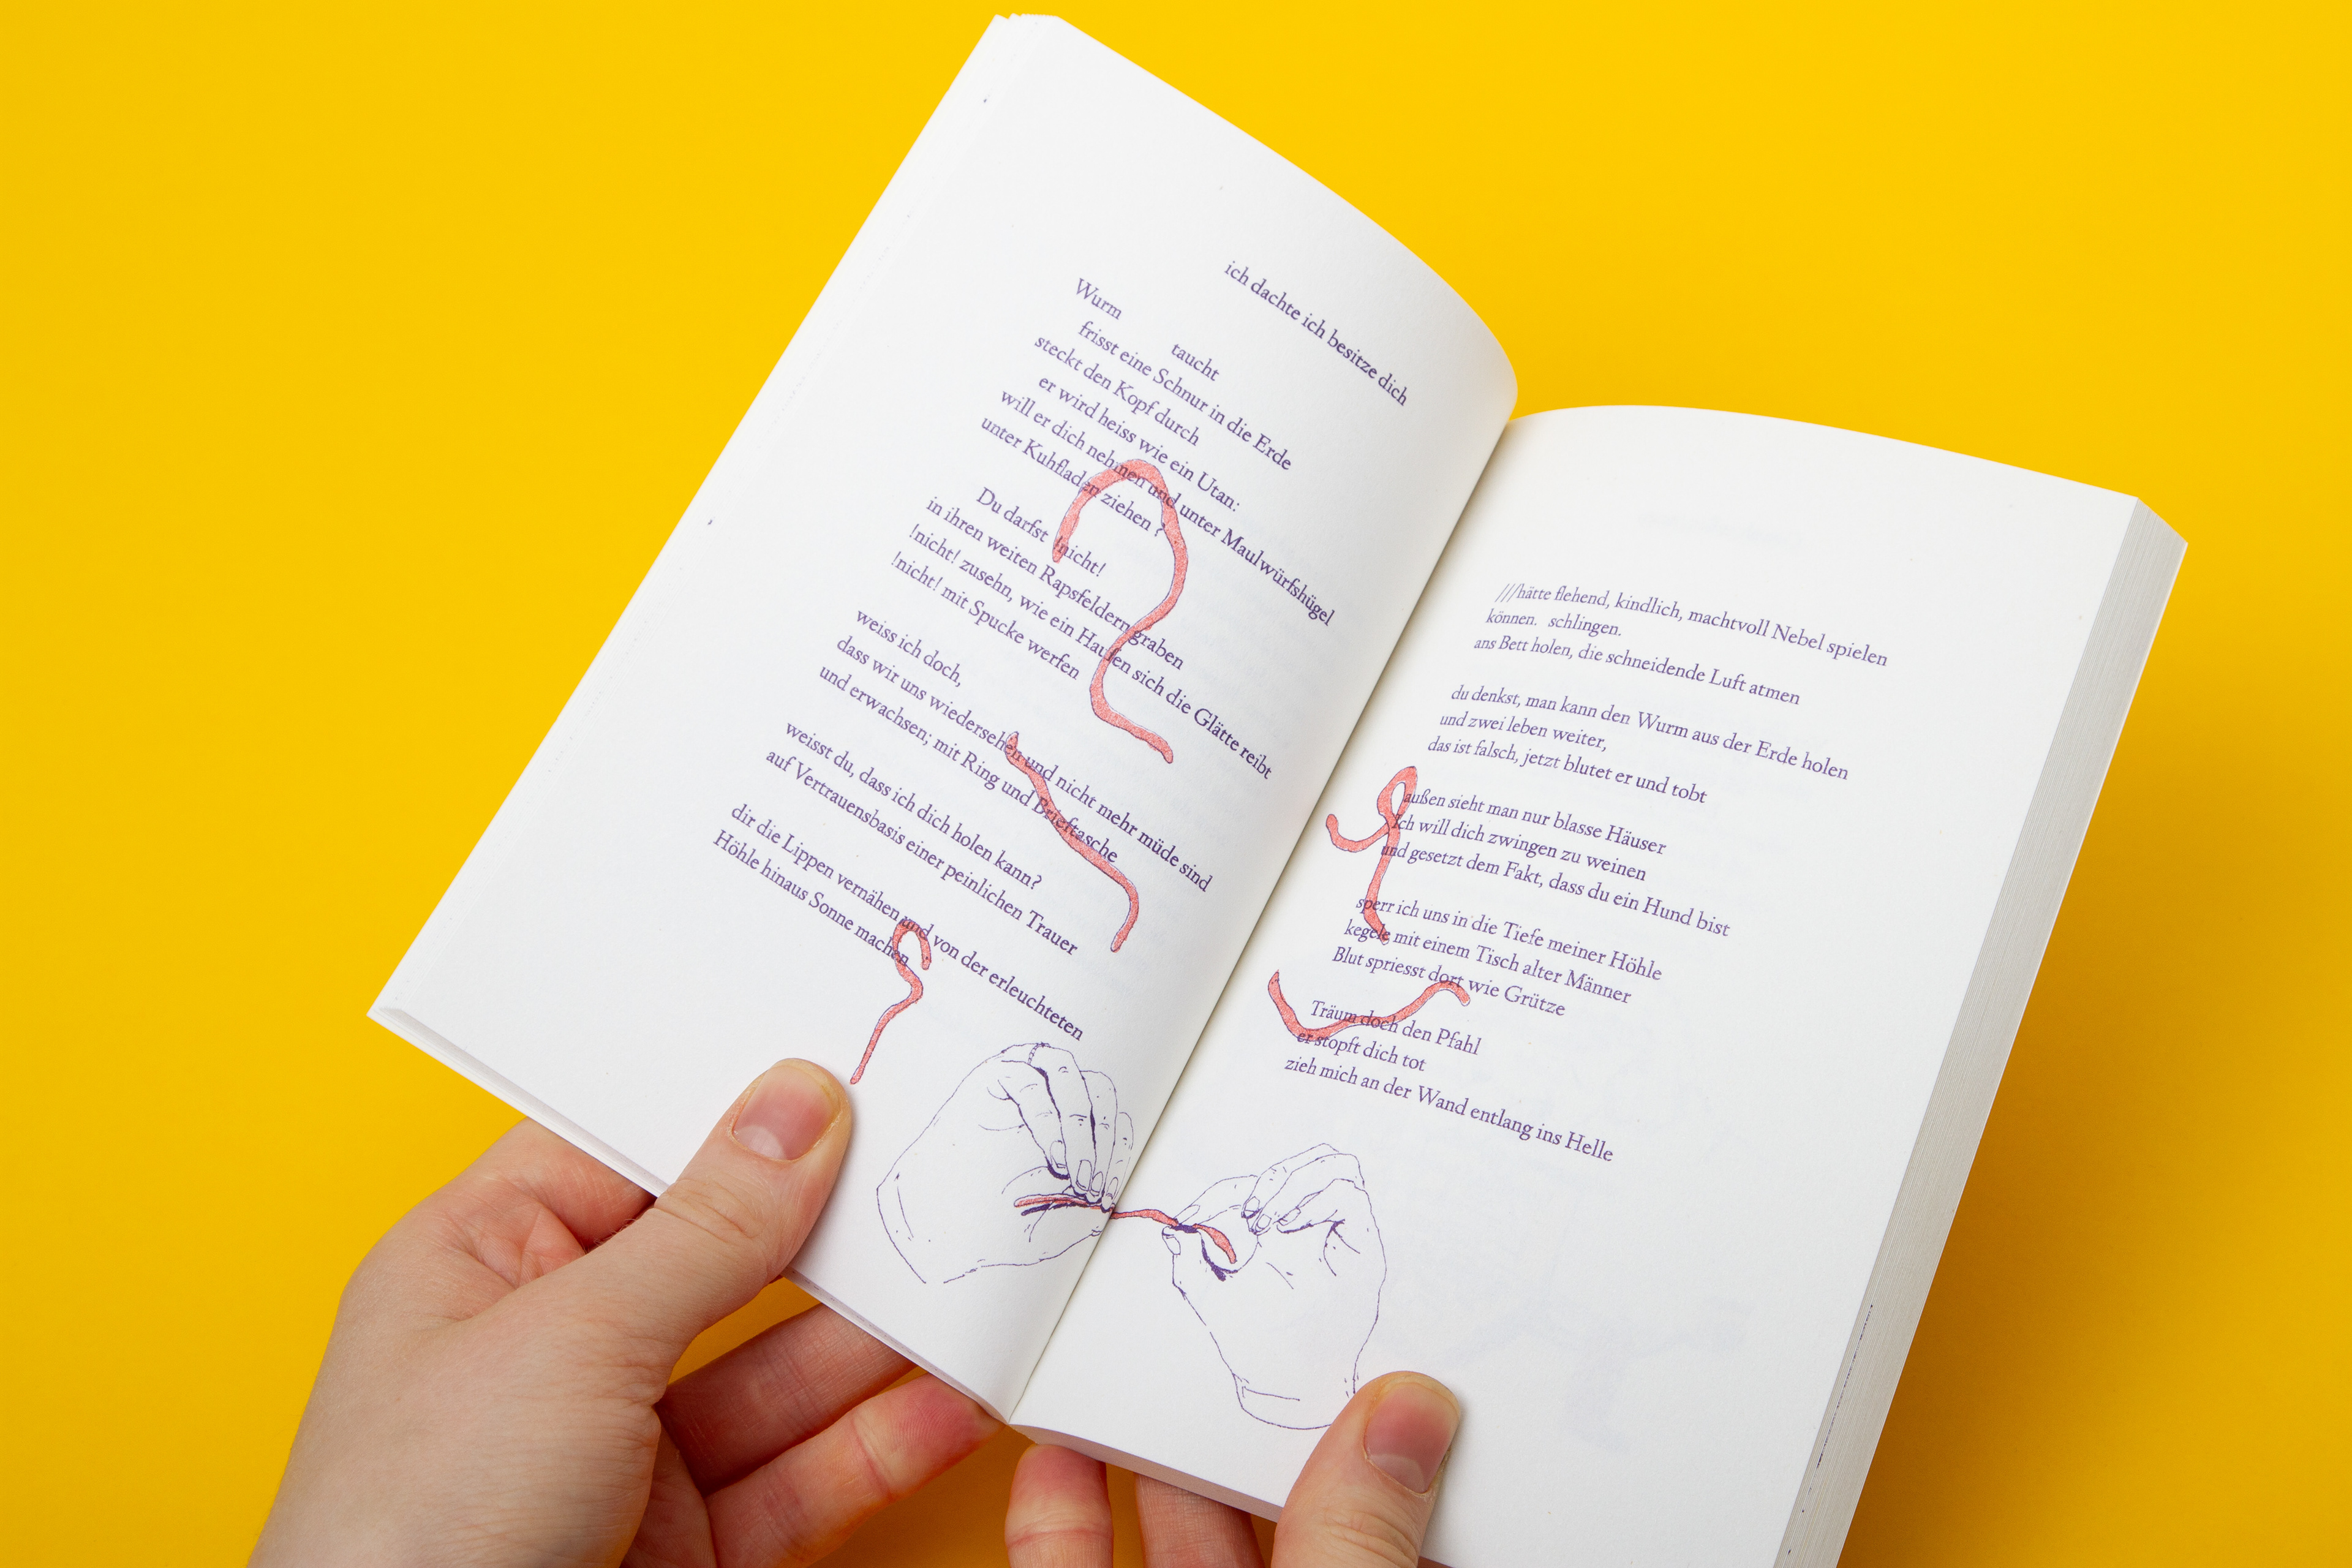 ich dachte ich besitze dich
Wurm
taucht
frisst eine Schnur in die Erde
steckt den Kopf durch
er wird heiss wie ein Utan:
will er dich nehmen und unter Maulwürfshügel
unter Kuhfladen ziehen ?
Du darfst !nicht!
in ihren weiten Rapsfeldern graben
!nicht! zusehn, wie ein Haufen sich die Glätte reibt
!nicht! mit Spucke werfen
weiss ich doch,
dass wir uns wiedersehen und nicht mehr müde sind
und erwachsen; mit Ring und Brieftasche
weisst du, dass ich dich holen kann?
auf Vertrauensbasis einer peinlichen Trauer
dir die Lippen vernähen und von der erleuchteten
Höhle hinaus Sonne machen
///hätte flehend, kindlich, machtvoll Nebel spielen
können. schlingen.
ans Bett holen, die schneidende Luft atmen
du denkst, man kann den Wurm aus der Erde holen
und zwei leben weiter,
das ist falsch, jetzt blutet er und tobt
außen sieht man nur blasse Häuser
ich will dich zwingen zu weinen
und gesetzt dem Fakt, dass du ein Hund bist
sperr ich uns in die Tiefe meiner Höhle
kegele mit einem Tisch alter Männer
Blut spriesst dort wie Grütze
Träum doch den Pfahl
er stopft dich tot
zieh mich an der Wand entlang ins Helle